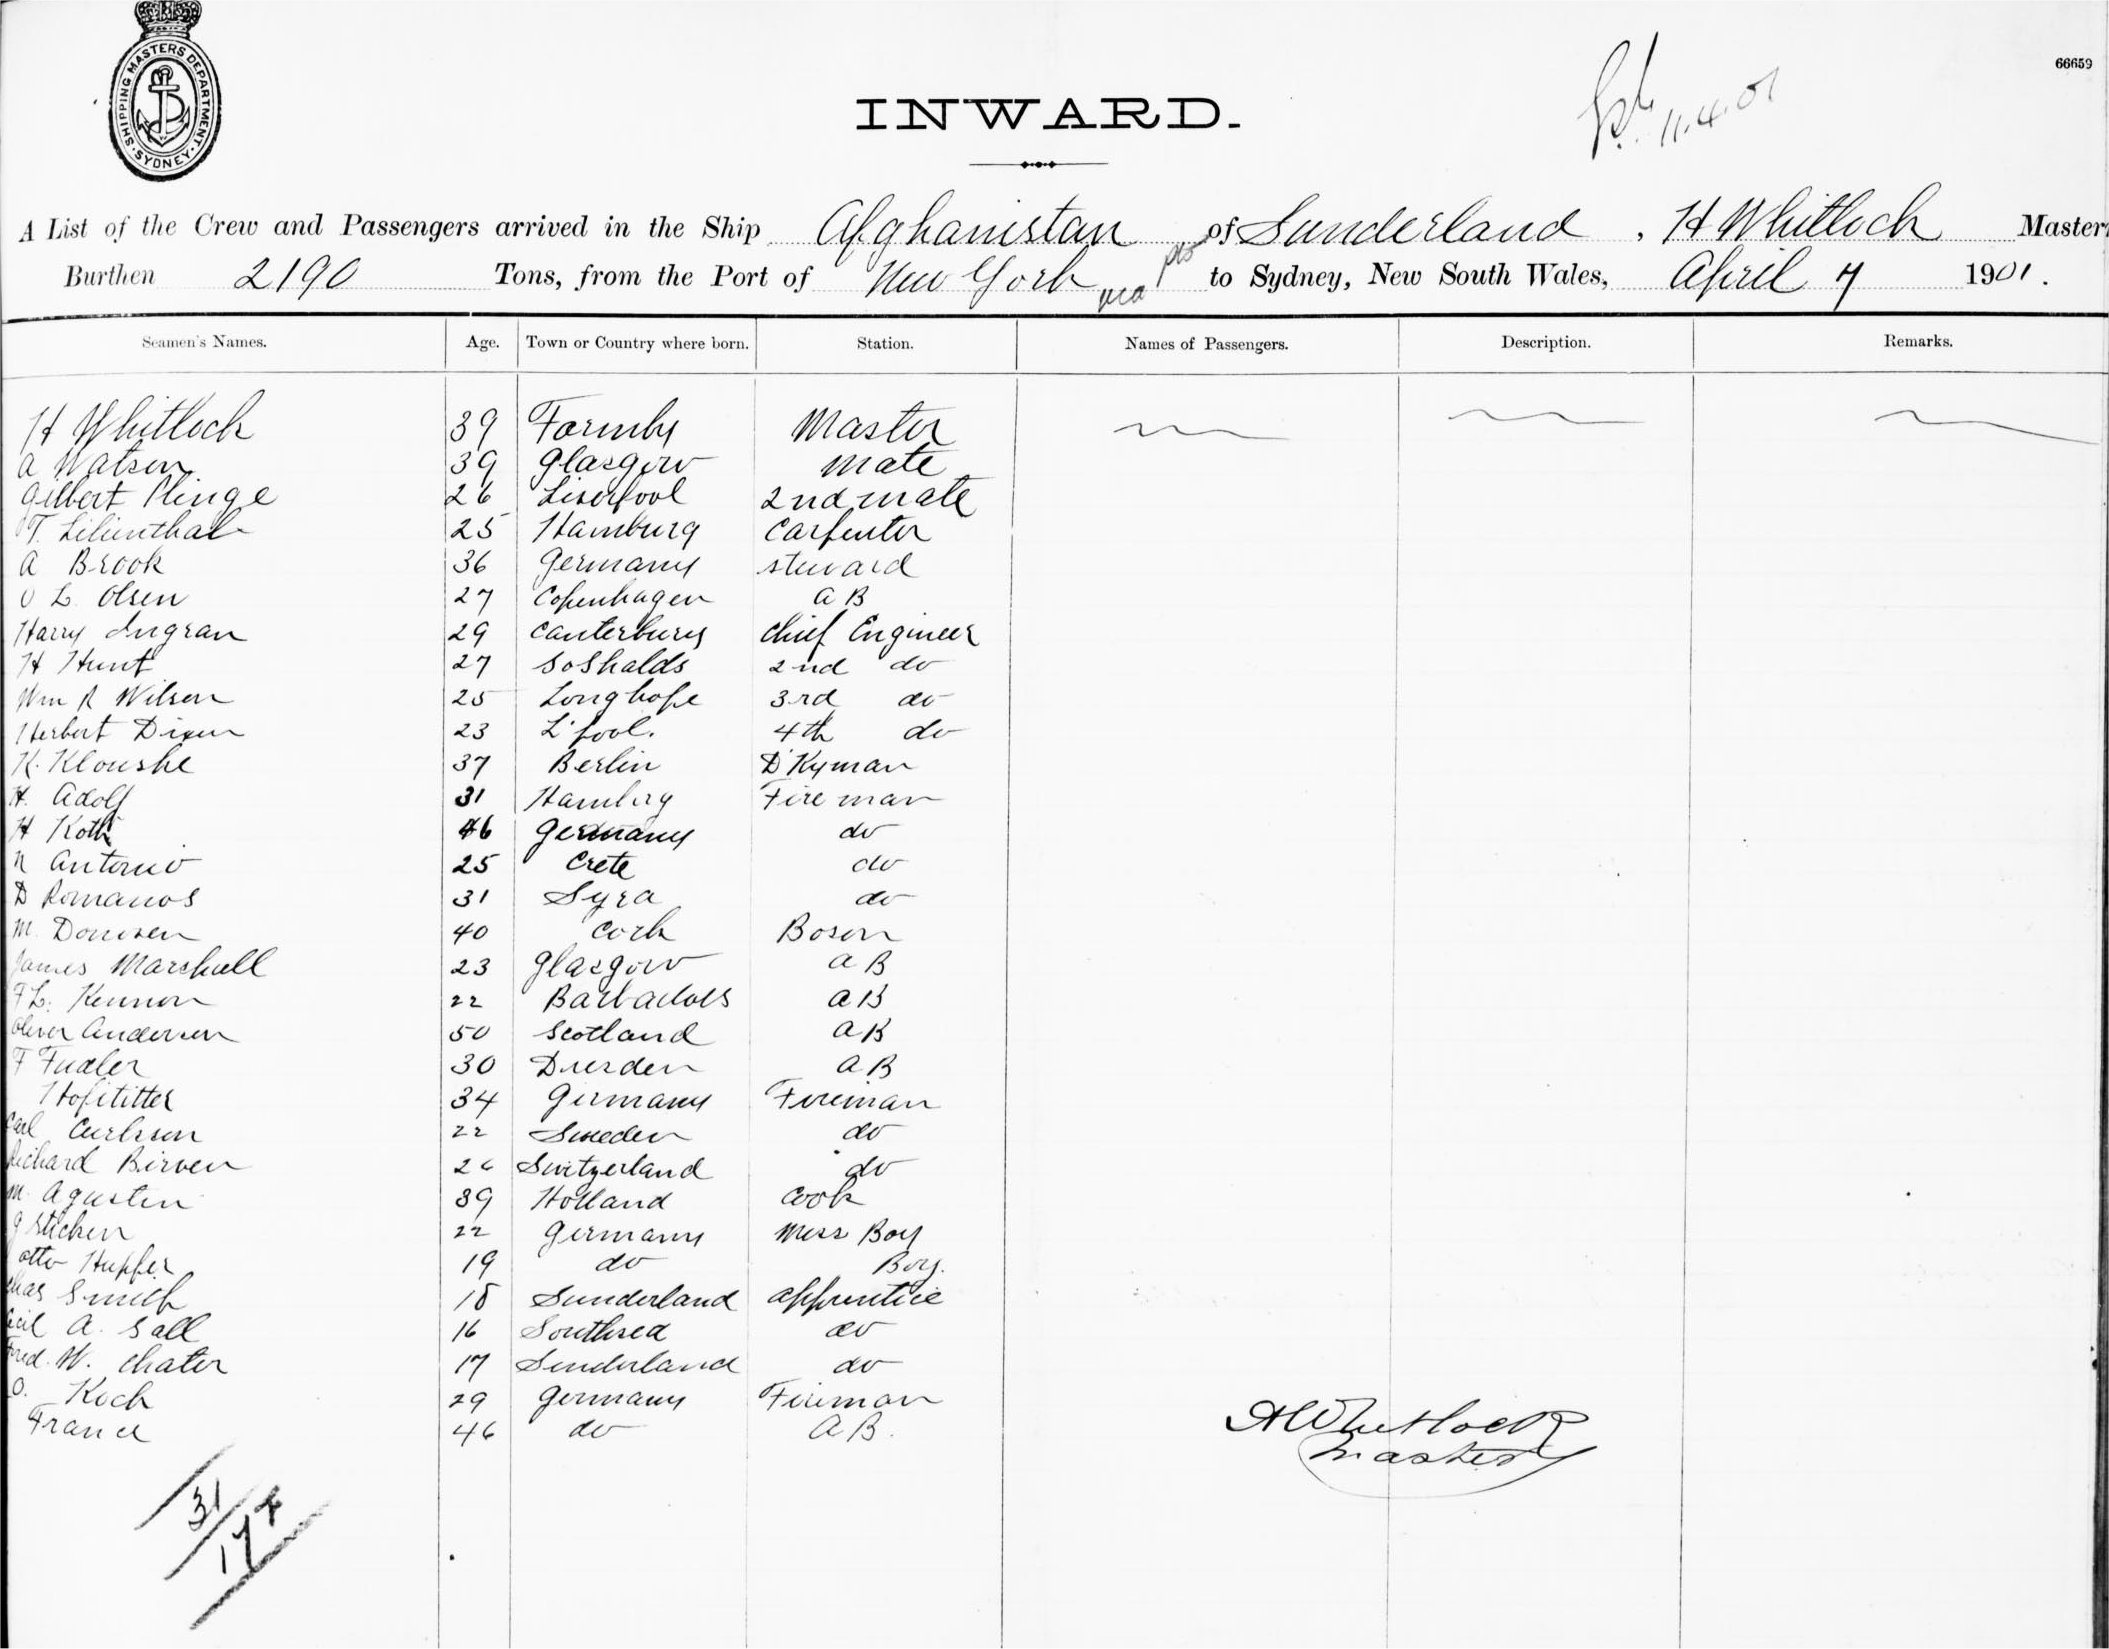 SHIPPING MASTERS DEPARTMENT. SYDNEY
66659
11.4.01
INWARD.
A List of the Crew and Passengers arrived in the Ship Afghanistan of Sunderland, H Whitlock Master,
Burthen 2190 Tons, from the Port of New York via to Sydney, New South Wales, April 7 1901.
Seamen's Names. Age. Town or Country where born. Station. Names of Passengers. Description. Remarks.
H Whitlock 39 Formby Master
A Watson 39 Glasgow Mate
Gilbert Plinge 26 Liverpool 2nd mate
T. Lilienthal 25 Hamburg Carpenter
A Brook 36 Germany steward
O L Olsen 27 Copenhagen A B
Harry Ingran 29 Canterbury Chief Engineer
H Hunt 27 2nd do
Wm R Wilson 25 Longhope 3rd do
Herbert Dixon 23 L'pool. 4th do
K. Klouske 37 Berlin D'Kyman
H. Adolf 31 Hamburg Fireman
H Koth 46 Germany do
N Antonio 25 Crete do
D Romanos 31 Syra do
M Donoven 40 Cork Bosen
James Marshall 23 Glasgow A B
F L. Kennon 22 Barbadoes A B
Oliver Andersen 50 Scotland A B
F Fudler 30 Dresden A B
Hofstitter 34 Germany Fireman
Carl Carlsson 22 Sweden do
Richard Birven 26 Switzerland do
M. Agusten 39 Holland Cook
G Sticken 22 Germany Mess Boy
Otto Hupfer 19 do Boy.
Chas Smith 18 Sunderland apprentice
Cecil A. Sall 16 Southsea do
Fred. W. Chater 17 Sunderland do
O. Koch 29 Germany Fireman
France 46 do A B.
H Whitlock
Master
31
17